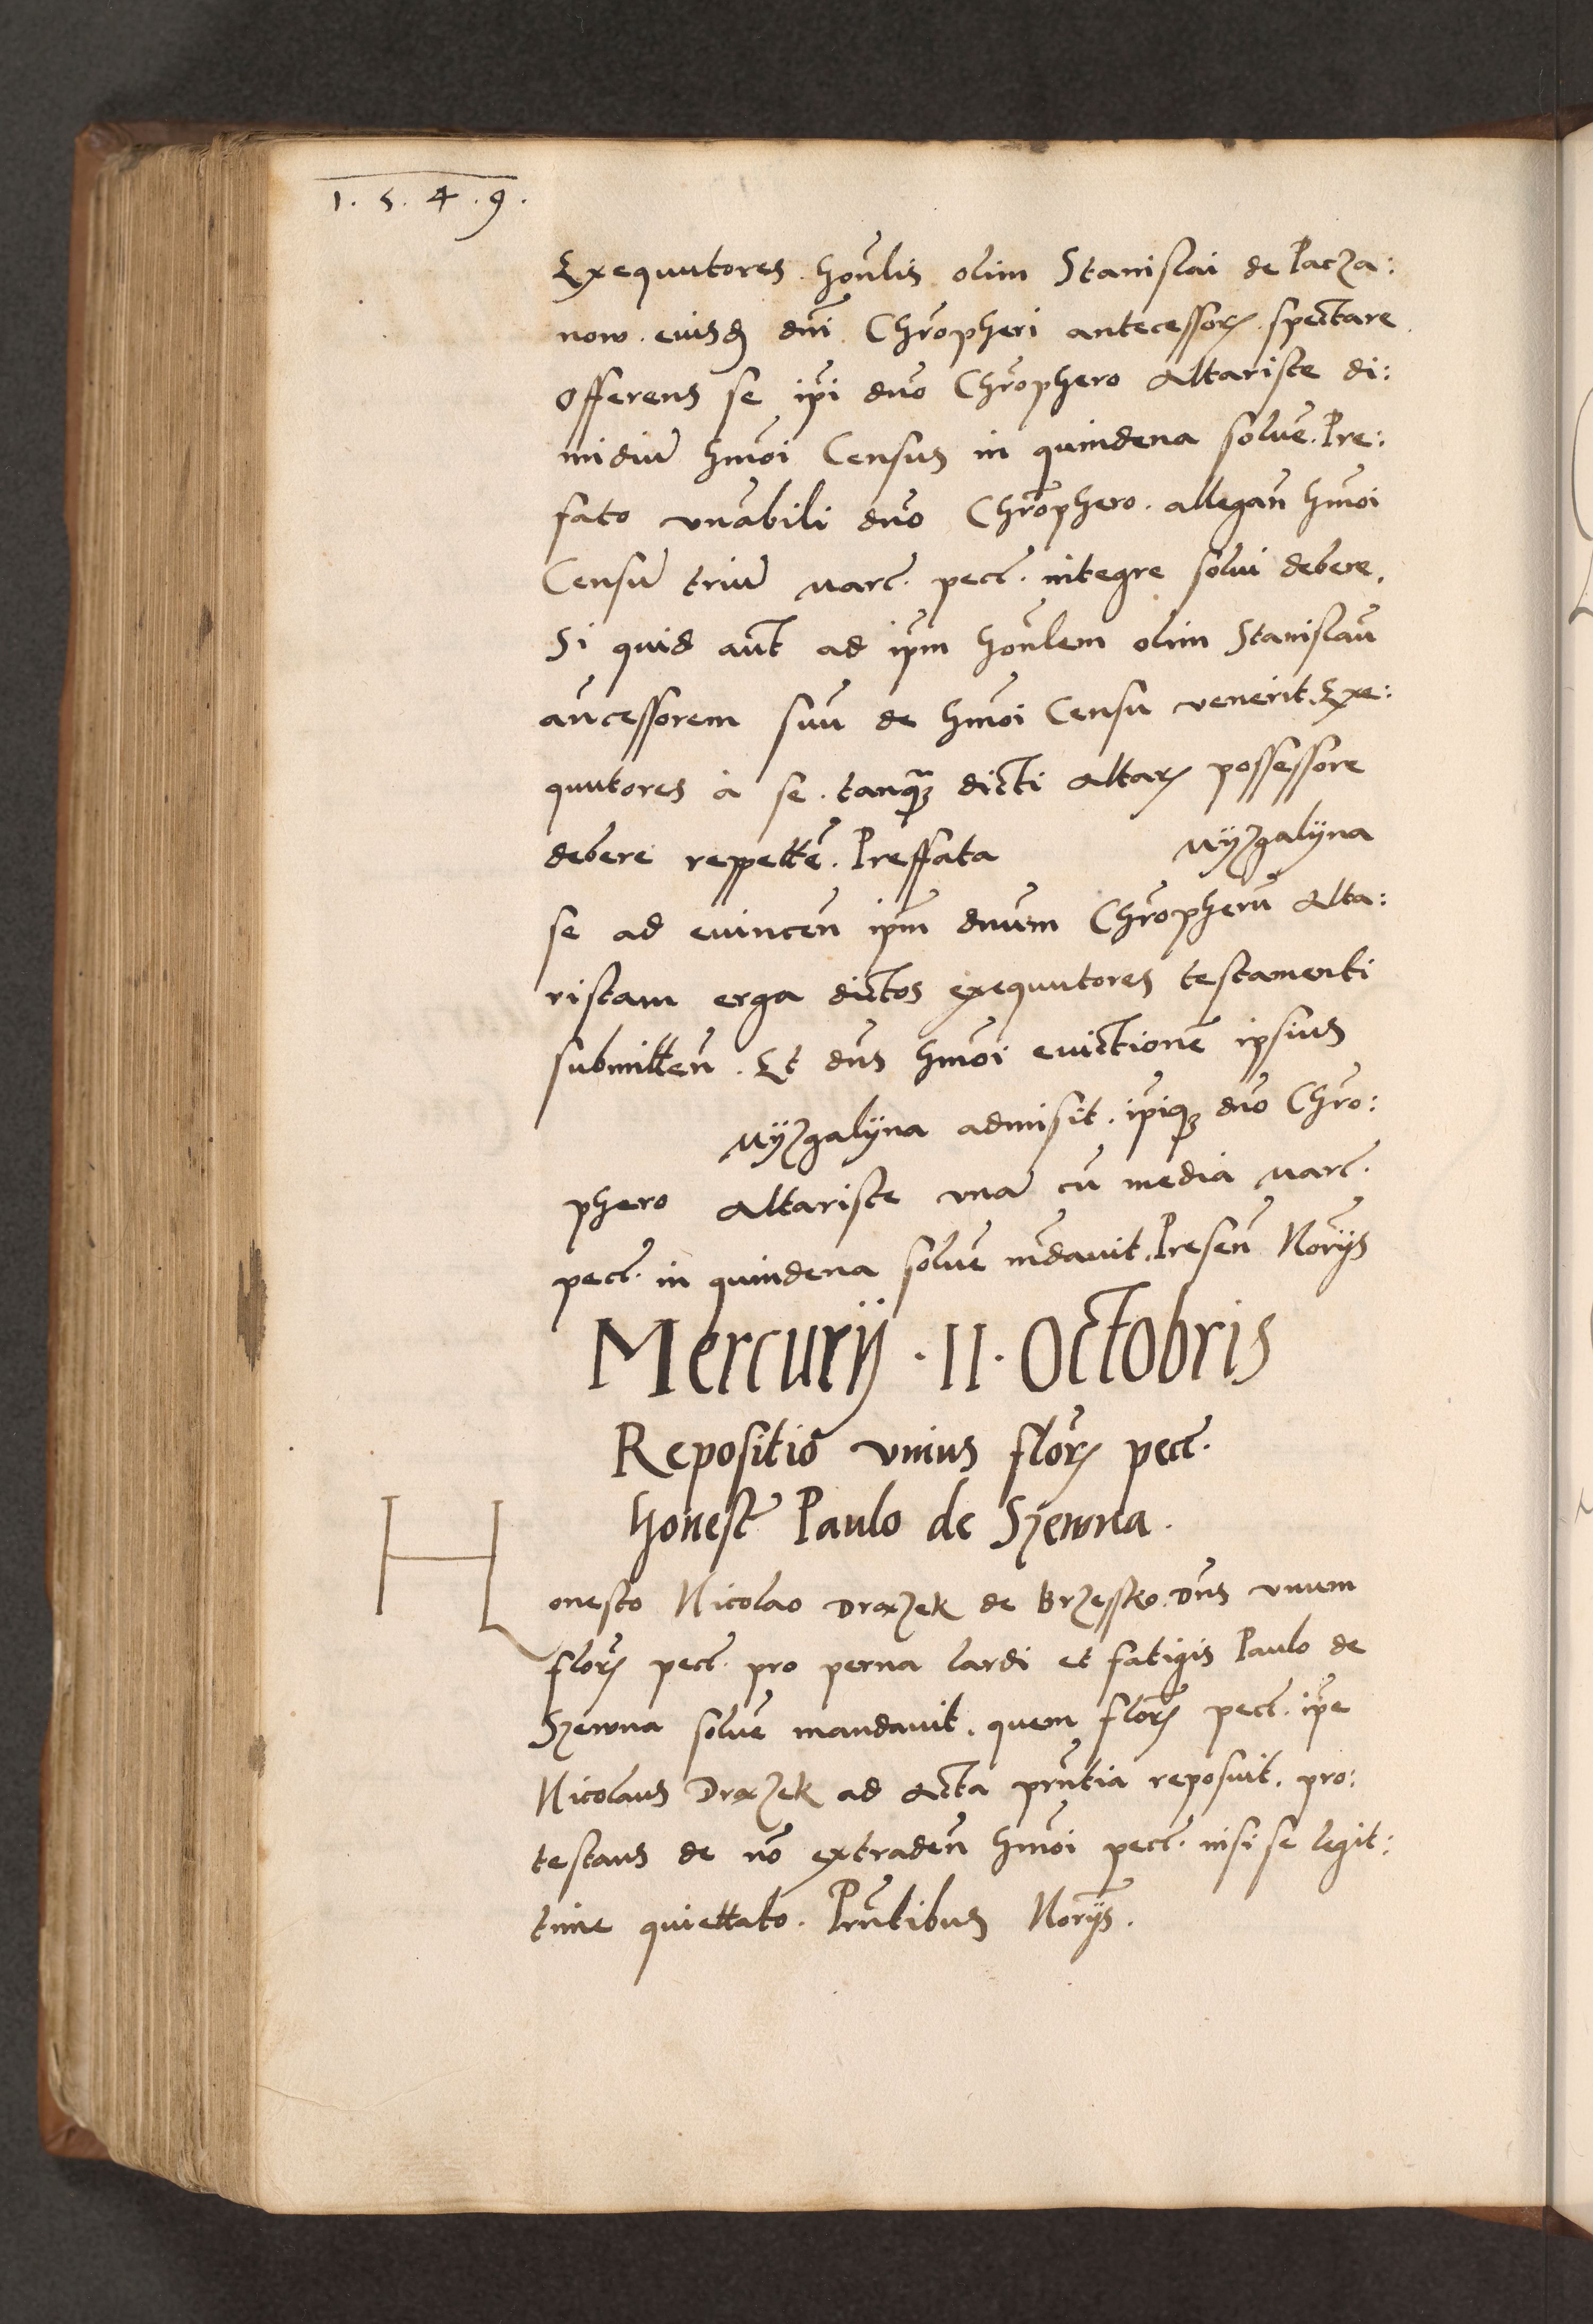 1.5.4.9.
Exequutores. hon̄lis olim Stanislai de Pacza:
now. eiusd. dn̄i Chr̄opheri antecessor͂ spectare
Offerens se ip̄i dn̄o Chr̄ophero Altariste di:
midiū hm̄oi Census in quindena solue͂. Pre:
fato vn̄abili dn̄o Chr̄ophero. allegan̄ hm̄oi
Censū triū marc. pec͂. integre solui debere.
Si quid aut͂ ad ip̄m hon̄lem olim Stanislaū
an̄cessorem suū de hm̄oi Censu venerit. Exe:
qutores à se. tanq̄ꝫ dicti altar͂ possessore
debere reppette͂. Preffata Myzgalyna
se ad euincen̄ ip̄m dnum Chr̄opherū Alta:
ristam erga dictos exequutores testamenti
submitten̄. Et dn̄s hm̄oi euictione͂ ipsius
Myzgalyna admisit. ip̄iqꝫ dn̄o Chr̄o:
phero Altariste vnā cū media marc.
pec͂. in quindena solue͂ m̄dauit. Presen̄ Nor̄ijs
Mercurij . 11 . Octobris
Repositio vnius flor͂ pec͂.
honest͂ Paulo de Szewna.
Honesto Nicolao Drazek de Brzessko. Dn̄s vnum
flor͂ pec͂. pro perna lardi et fatigis Paulo de
Szewna solue͂ mandauit. quem flor͂ pec͂. ip̄e
Nicolaus Drazek ad acta prn̄tia reposuit. pro:
testans de nō extraden̄ hm̄oi pec͂. nisi se legit:
time quiettato. Prn̄tibus Nor̄ijs.